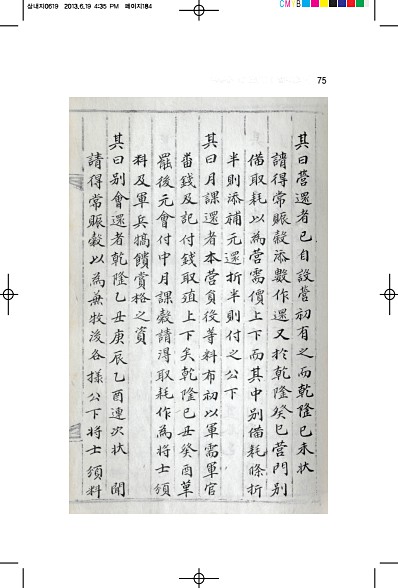 삼내지0619 2013.6.19 4:35 PM 페이지184
CMYB
75
其曰營還者已自設營初有之而乾隆己未狀
請得常賑穀添數作還又於乾隆癸巳營門別
備取耗以為營需價上下而其中別備耗條折
半則添補元還折半則付之公下
其曰月課還者本營頁後等料布初以軍需軍官
畨錢及記付錢取殖上下矣乾隆己丑癸酉革
罷後元會付中月課穀請得取耗作為將士須
料及軍兵犒饋賞格之資
其曰別會還者乾隆乙丑庚辰乙酉連次狀 聞
請得常賑穀以為兼牧後各樣公下將士須料